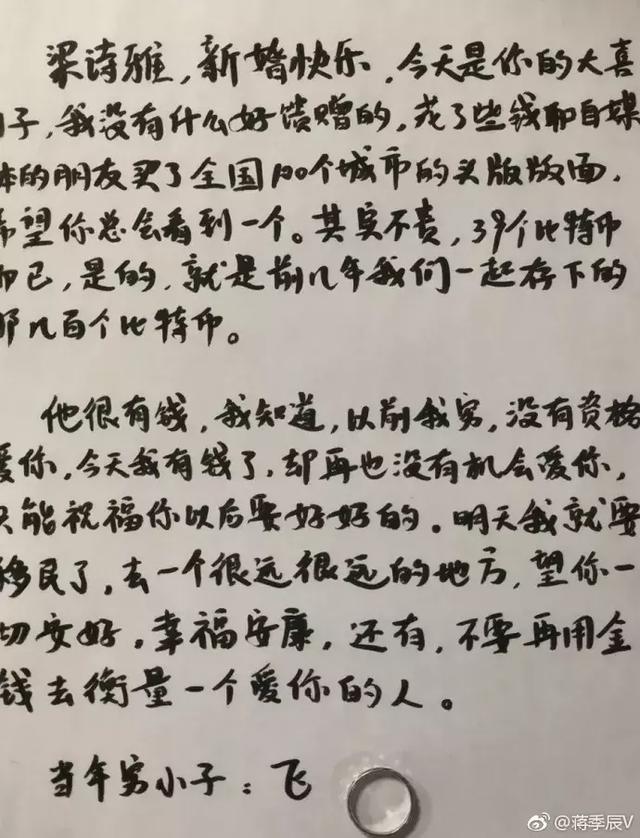 梁诗雅，新婚快乐，今天是你的大喜
日子，我没有什么好馈赠的，花了些钱和自媒
体的朋友买了全国100个城市的头版版面，
希望你总会看到一个。其实不贵，39个比特币
而已，是的，就是前几年我们一起存下的
那几百个比特币。
他很有钱，我知道，以前我穷，没有资格
爱你，今天我有钱了，却再也没有机会爱你，
只能祝福你以后要好好的。明天我就要
移民了，去一个很远很远的地方，望你一
切安好，幸福安康，还有，不要再用金
钱去衡量一个爱你的人。
当年穷小子：飞
@蒋季辰V